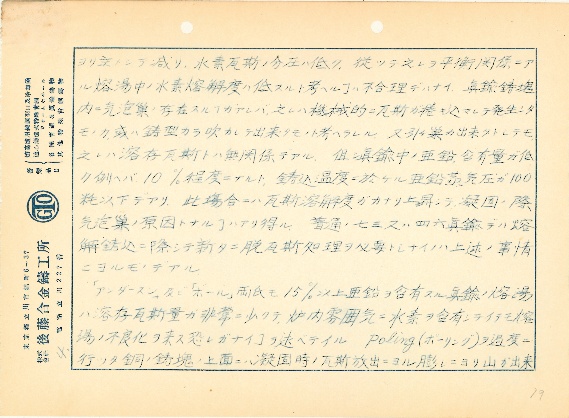 ヨリ式シテ減リ、水素瓦斯ノ分圧ハ低ク、従ツテ之レヲ平衡関係ニア
ル熔湯中ノ水素熔解度ハ低スルト考ヘル」ハ不合理デハナイ。真鍮鋳塊
内ニ気泡巣ノ存在スル」ガアレバ、之レハ機械的ニ瓦斯ガ捲キ込マレテ発生シタ
モノカ或ハ鋳型カラ吹カレテ出来タモノト考ヘラレル。又引巣ガ出来ストシテモ
之レハ溶存瓦斯トハ無関係デアル。但シ真鍮中ノ亜鉛含有量ガ低
ク例ヘバ10%程度ニナルト、鋳込温度ニ於ケル亜鉛蒸気圧ガ100
粍以下デアリ、此場合ニハ瓦斯溶解度ガカナリ上昇シテ、凝固ノ際
気泡巣ノ原因トナル」ハアリ得ル。普通ノ七三又ハ四六真鍮デハ熔
解鋳込ニ際シテ新タニ脱瓦斯処理ヲ必要トシナイハ上述ノ事情
ニヨルモノデアル
「アンダースン」及ビ「ボール」両氏モ15%以上亜鉛ヲ含有スル真鍮ノ熔湯
ハ溶存瓦斯量ガ非常ニ少クテ炉内雰囲気ニ水素ヲ含有シテヰテモ熔
湯ノ不良化ヲ来ス恐レガナイ」ヲ述ヘテイル Poling(ポーリング)ヲ過度ニ
行ツタ銅ノ鋳塊ノ上面ニハ凝固時ノ瓦斯放出ニヨル膨レニヨリ山ガ出来
後藤合金鑄工所
19